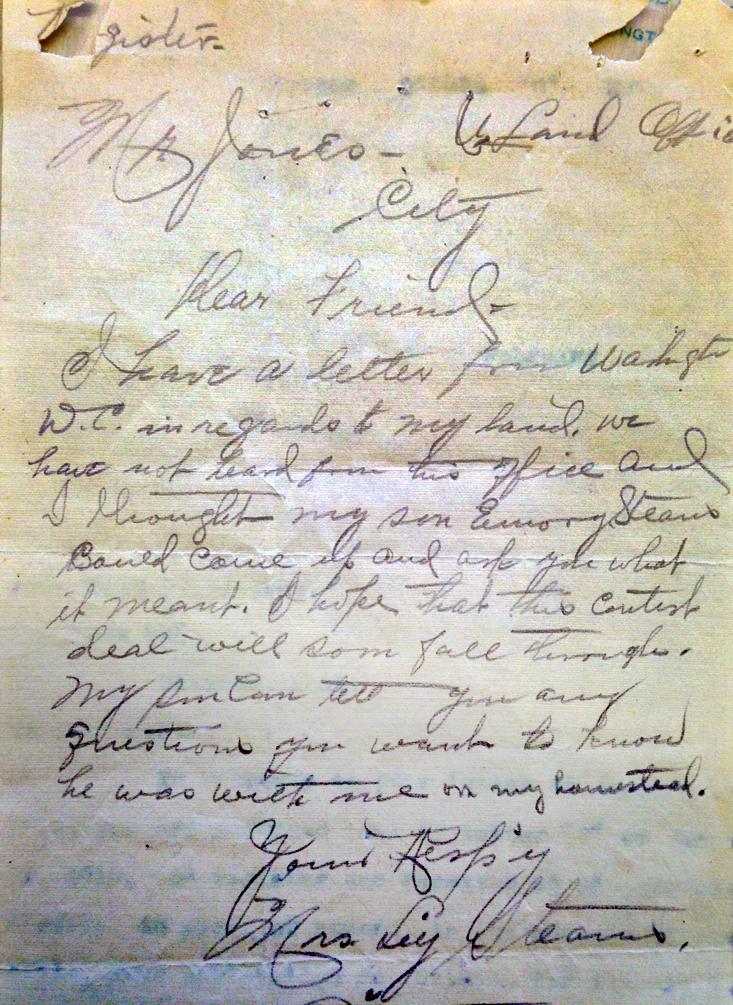 gister-
NGT
Mr Jones - US Land Offic
City
Dear Friend -
I have a letter from Washingtn
D.C. in regards to my land. we
have not heard from this office and
I thought my son Emory Stearns
Could come up and ask you what
it meant. I hope that this Contest
deal will soon fall through.
My son Can tell you any
questions you want to know
he was with me on my homestead.
Yours Resp'y
Mrs Stearns.